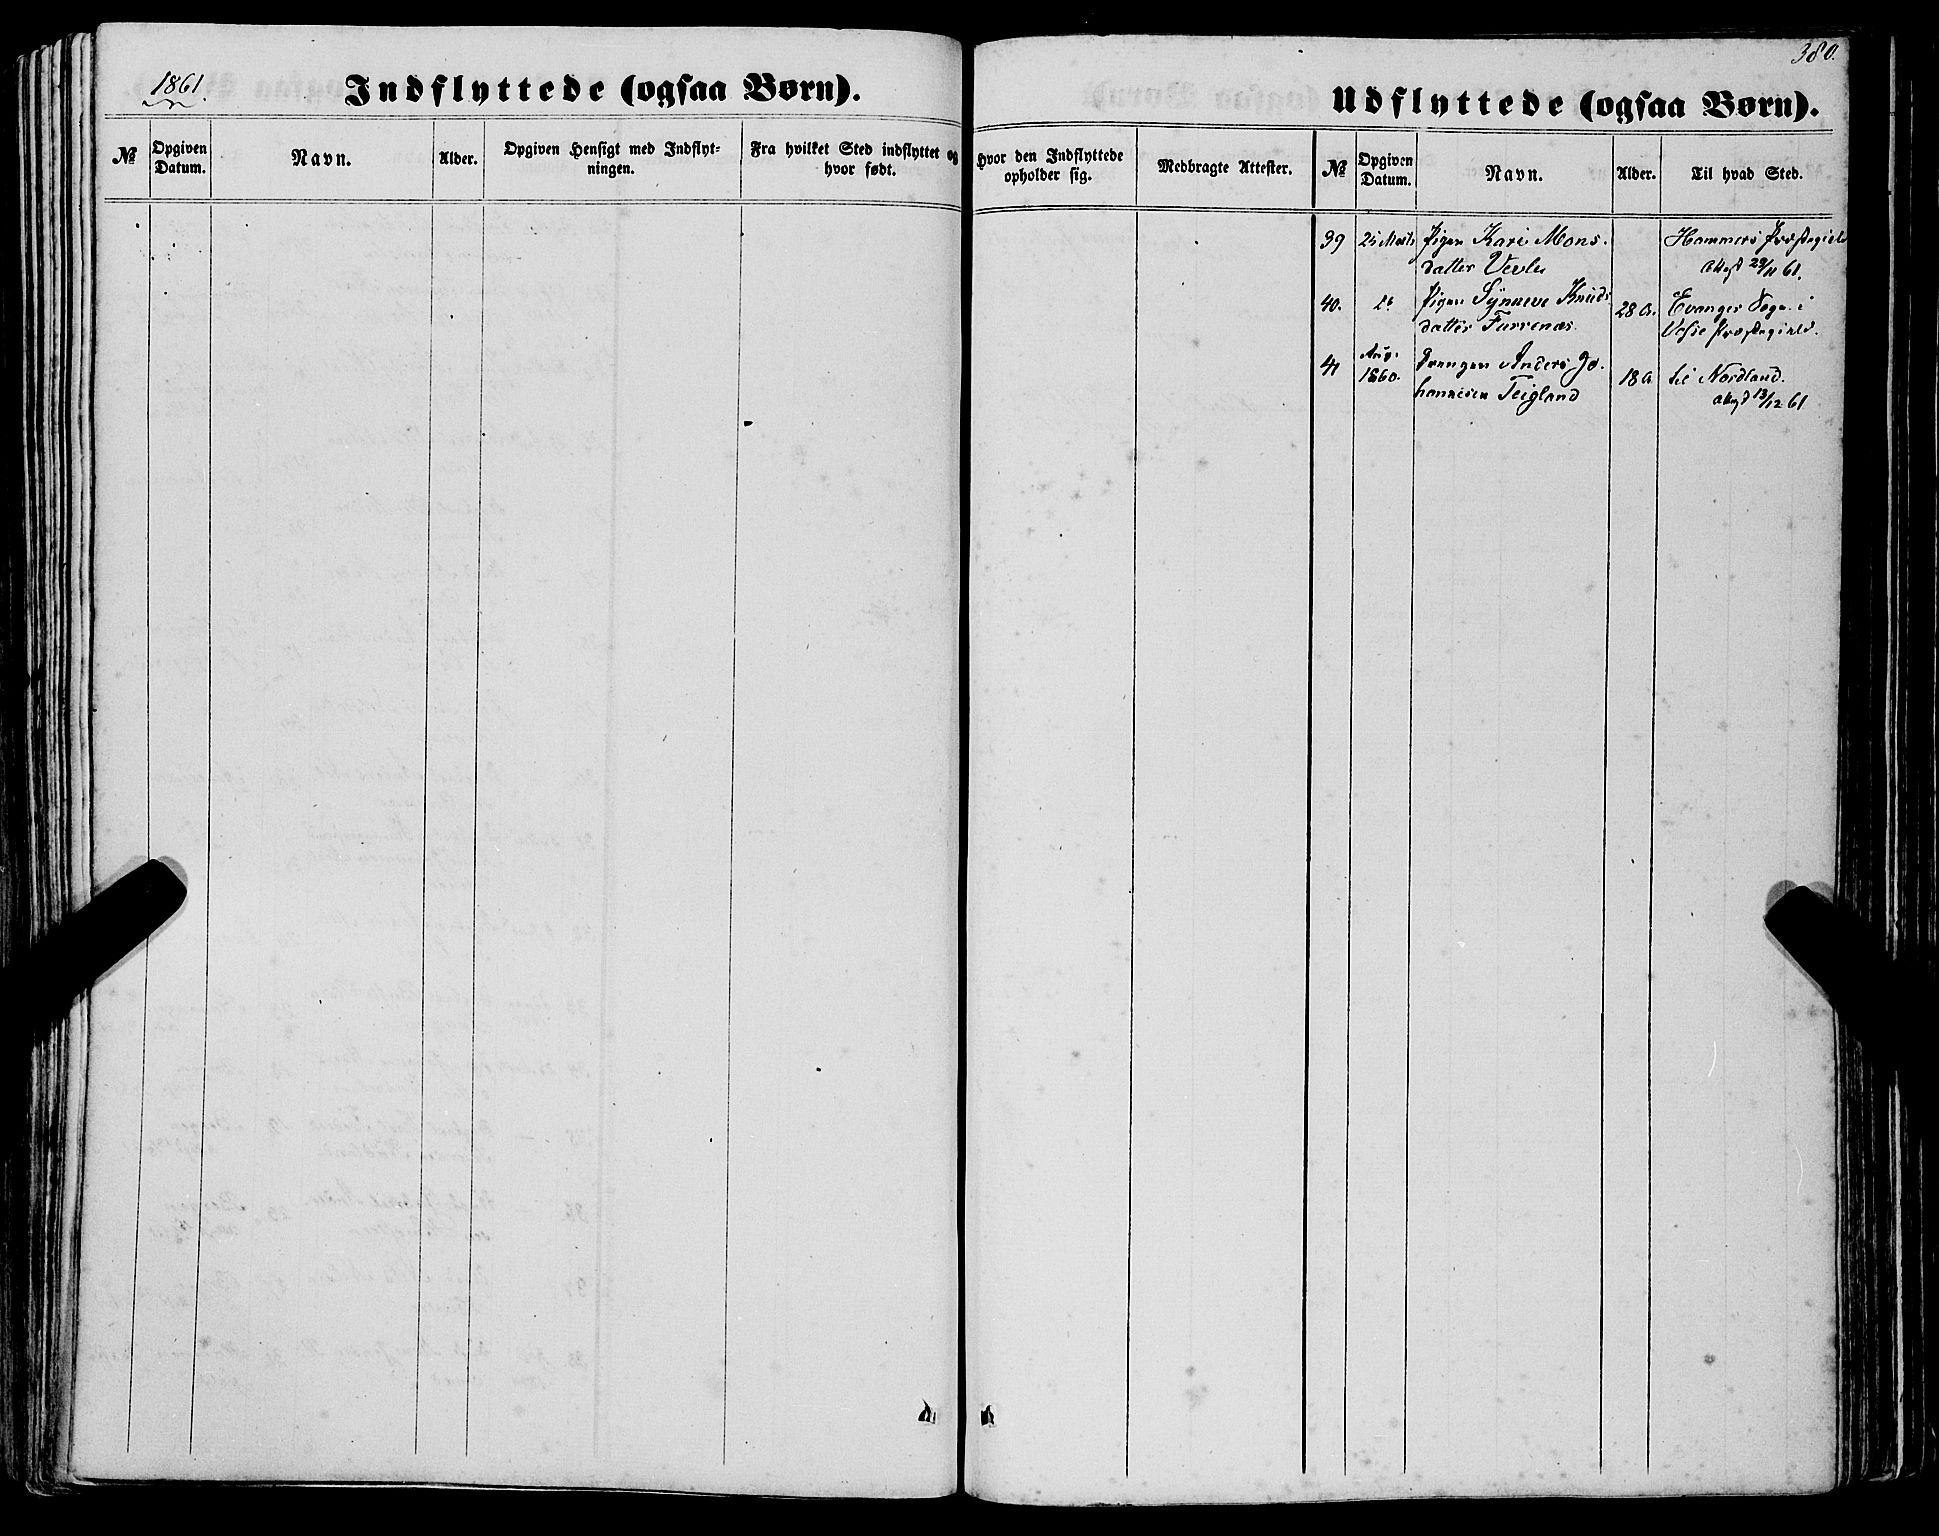 1861.
Indflyttede (ogsaa Børn).
№
Opgiven Datum.
Navn.
Alder.
Opgiven Hensigt med Indflyt=
ningen.
Fra hvilket Sted indflyttet og
hvor født.
380.
Udflyttede (ogsaa Børn).
Hvor den Indflyttede
opholder sig.
Medbragte Attester.
№
Opgiven
Datum.
Navn.
Alder.
Til hvad Sted.
39 Pigen Kari Mons- Hammers Præstegield
datter Vevle 29/11 61.
40. Pigen Synneve Knuds 28 A. Evanger Sogn i
datter Furrenæs Præstegield.
41 Aug. Drengen Anders Jo-
1860. hannesen Teigland 18 A til Nordland.
13/12 61